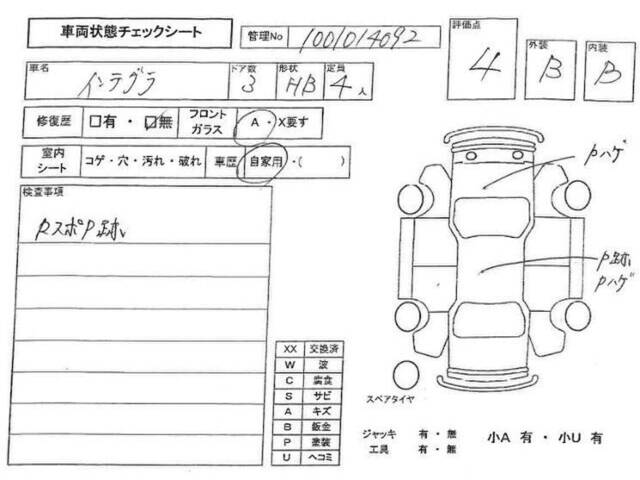 車両状態チェックシート 管理No 1001014092
評価点 4 外装 B 内装 B
車名 インテグラ ドア数 3 形状 HB 定員 4人
修復歴 □有・☑無 フロントガラス A・X要す
室内シート コゲ・穴・汚れ・破れ 車歴 自家用・( )
検査事項
RスポP跡
Pハゲ
P跡
Pハゲ
XX 交換済
W 波
C 腐食
S サビ
A キズ
B 鈑金
P 塗装
U ヘコミ
スペアタイヤ
ジャッキ 有・無
工具 有・無
小A 有・小U 有